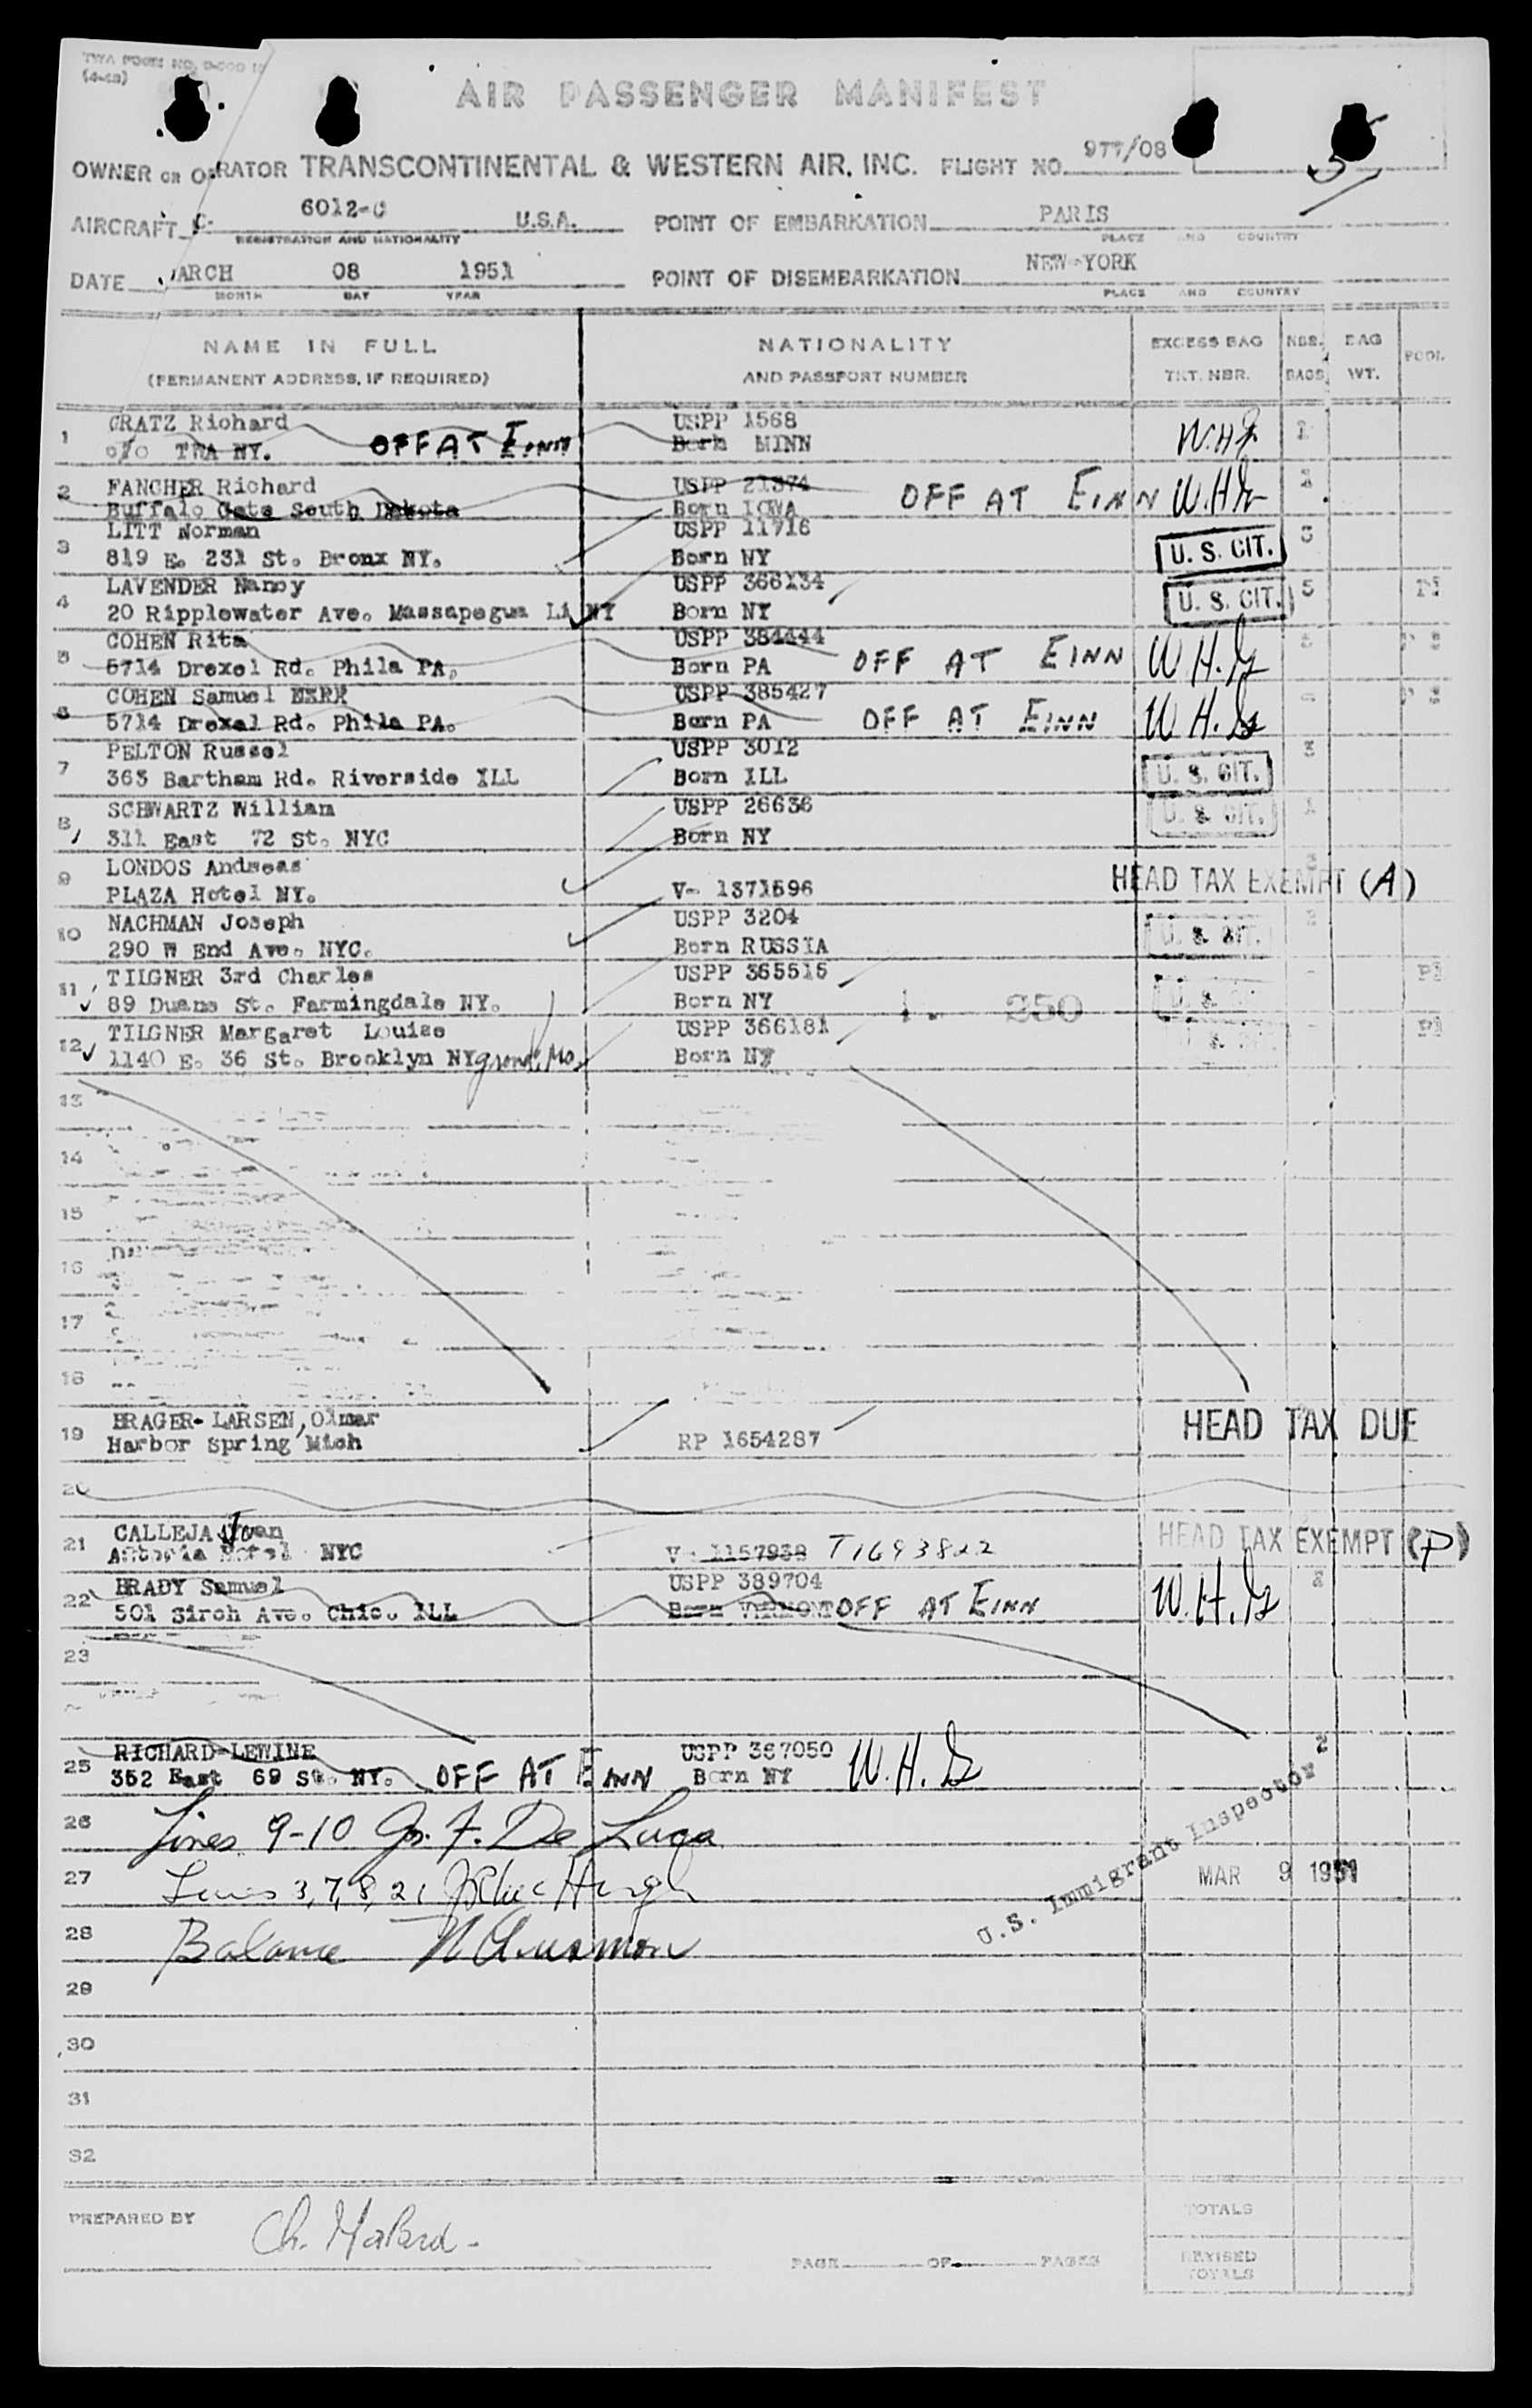 (4-48)
AIR PASSENGER MANIFEST
OWNER OR OPRATOR TRANSCONTINENTAL & WESTERN AIR, INC. FLIGHT NO. 977/08
AIRCRAFT C- 6012-C U.S.A. POINT OF EMBARKATION PARIS
REGISTRATION AND NATIONALITY PLACE AND COUNTRY
DATE MARCH 08 1951 POINT OF DISEMBARKATION NEW-YORK
MONTH DAY YEAR PLACE AND COUNTRY
NAME IN FULL NATIONALITY EXCESS BAG NBR. BAG POOL
(PERMANENT ADDRESS, IF REQUIRED) AND PASSPORT NUMBER TKT. NBR. BAGS WT.
1 GRATZ Richard USPP 1568
c/o TWA NY. OFF AT EINN Born MINN W.H.G.
2 FANCHER Richard USPP 21374 OFF AT EINN W.H.G.
Buffalo Gate South Dakota Born IOWA
3 LITT Norman USPP 11716 3
819 E. 231 St. Bronx NY. Born NY U. S. CIT.
4 LAVENDER Nancy USPP 366134 5
20 Ripplewater Ave. Massapegua LI NY Born NY U. S. CIT.
5 COHEN Rita USPP 384444 OFF AT EINN W.H.G.
5714 Drexel Rd. Phila PA. Born PA
6 COHEN Samuel USPP 385427
5714 Drexel Rd. Phila PA. Born PA OFF AT EINN W.H.G.
7 PELTON Russel USPP 3012 3
363 Bartham Rd. Riverside ILL Born ILL U. S. CIT.
8 SCHWARTZ William USPP 26636 1
311 East 72 St. NYC Born NY U. S. CIT.
9 LONDOS Andreas HEAD TAX EXEMPT (A)
PLAZA Hotel NY. V- 1371596
10 NACHMAN Joseph USPP 3204 2
290 W End Ave. NYC. Born RUSSIA U. S. CIT.
11 TILGNER 3rd Charles USPP 365515
89 Duane St. Farmingdale NY. Born NY 250 U. S.
12 TILGNER Margaret Louise USPP 366181
1140 E. 36 St. Brooklyn NY Born NY
13
14
15
16
17
18
19 BRAGER-LARSEN, Olmar HEAD TAX DUE
Harbor Spring Mich RP 1654287
20
21 CALLEJA Ivan HEAD TAX EXEMPT (P)
Astoria Hotel NYC V- 1157938 T1693822
22 BRADY Samuel USPP 389704 2
501 Sirch Ave. Chic. ILL Born VERMONT OFF AT EINN W.H.G.
23
25 RICHARD-LEWINE USPP 367050 W.H.G. 2
352 East 69 St. NY. OFF AT EINN Born NY
26 Lines 9-10 F. De Luca
27 Lines 3,7,8,21
U.S. Immigrant Inspector
MAR 9 1951
28 Balance
29
30
31
32
PREPARED BY TOTALS
PAGE OF PAGES REVISED TOTALS